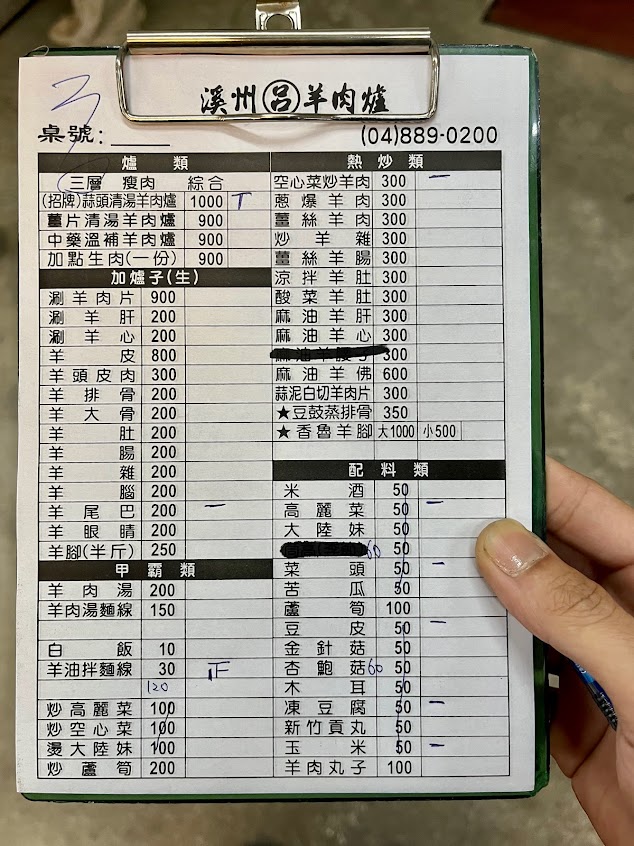 溪州呂羊肉爐
桌號：
(04)889-0200
爐 類
三層 瘦肉 綜合
(招牌)蒜頭清湯羊肉爐 1000 T
薑片清湯羊肉爐 900
中藥溫補羊肉爐 900
加點生肉(一份) 900
加爐子(生)
涮羊肉片 900
涮羊肝 200
涮羊心 200
羊皮 800
羊頭皮肉 300
羊排骨 200
羊大骨 200
羊肚 200
羊腸 200
羊雜 200
羊腦 200
羊尾巴 200 一
羊眼睛 200
羊腳(半斤) 250
甲霸類
羊肉湯 200
羊肉湯麵線 150
白飯 10
羊油拌麵線 30 正
120
炒高麗菜 100
炒空心菜 100
燙大陸妹 100
炒蘆筍 200
熱炒類
空心菜炒羊肉 300 一
蔥爆羊肉 300
薑絲羊肉 300
炒羊雜 300
薑絲羊腸 300
涼拌羊肚 300
酸菜羊肚 300
麻油羊肝 300
麻油羊心 300
麻油羊腰子 300
麻油羊佛 600
蒜泥白切羊肉片 300
★豆鼓蒸排骨 350
★香魯羊腳 大1000 小500
配料類
米酒 50
高麗菜 50 一
大陸妹 50
60 50
菜頭 50 一
苦瓜 50
蘆筍 100
豆皮 50 一
金針菇 50
杏鮑菇 60 50
木耳 50
凍豆腐 50 一
新竹貢丸 50
玉米 50 一
羊肉丸子 100